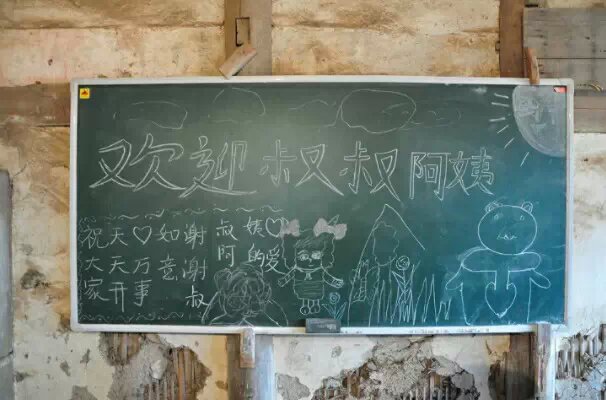 欢迎叔叔阿姨
祝大家
天天开
♡万事
如意
谢谢叔
叔阿
姨的
♡爱